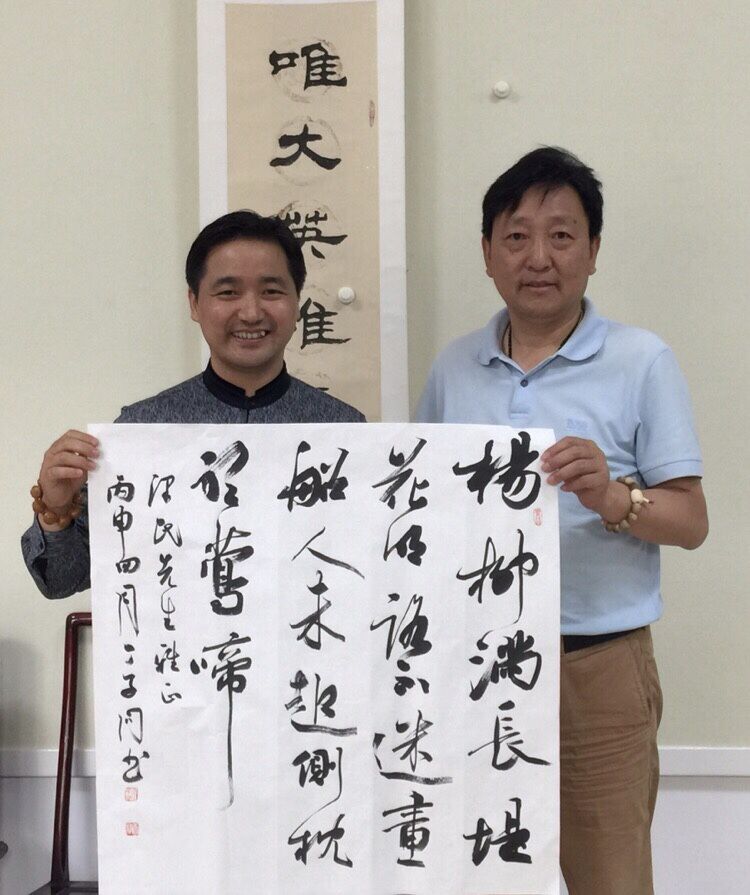 唯大英雄
楊柳滿長堤
花明路不迷畫
船人未起側枕
聽鶯啼
民先生雅正
丙申四月子书